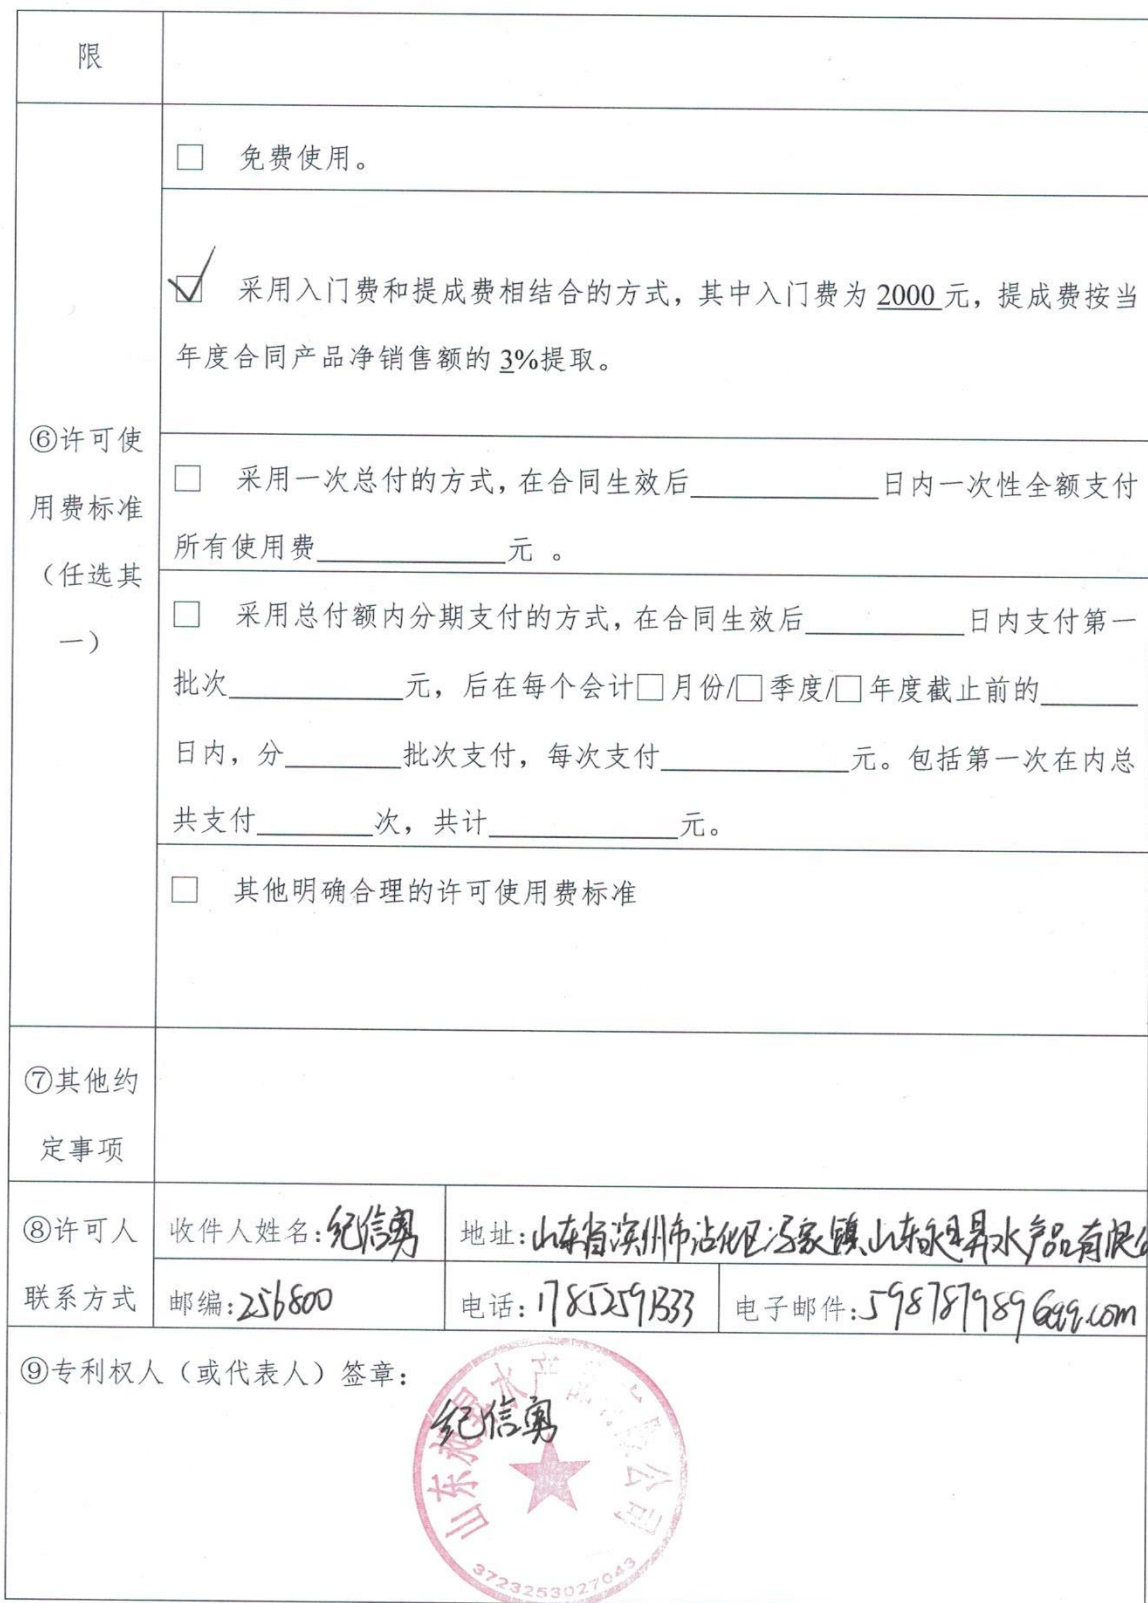 限
□ 免费使用。
☑ 采用入门费和提成费相结合的方式，其中入门费为 2000 元，提成费按当
年度合同产品净销售额的 3%提取。
⑥许可使
用费标准
（任选其
一）
□ 采用一次总付的方式，在合同生效后____________日内一次性全额支付
所有使用费____________元 。
□ 采用总付额内分期支付的方式，在合同生效后__________日内支付第一
批次___________元，后在每个会计□月份/□季度/□年度截止前的______
日内，分_______批次支付，每次支付____________元。包括第一次在内总
共支付_______次，共计____________元。
□ 其他明确合理的许可使用费标准
⑦其他约
定事项
⑧许可人
联系方式
收件人姓名：纪信勇
地址：山东省滨州市沾化区冯家镇山东 水产品有限
邮编：256800
电话：17852591333
电子邮件：598787989@qq.com
⑨专利权人（或代表人）签章：
纪信勇
山东 水产品有限公司
3723253027043